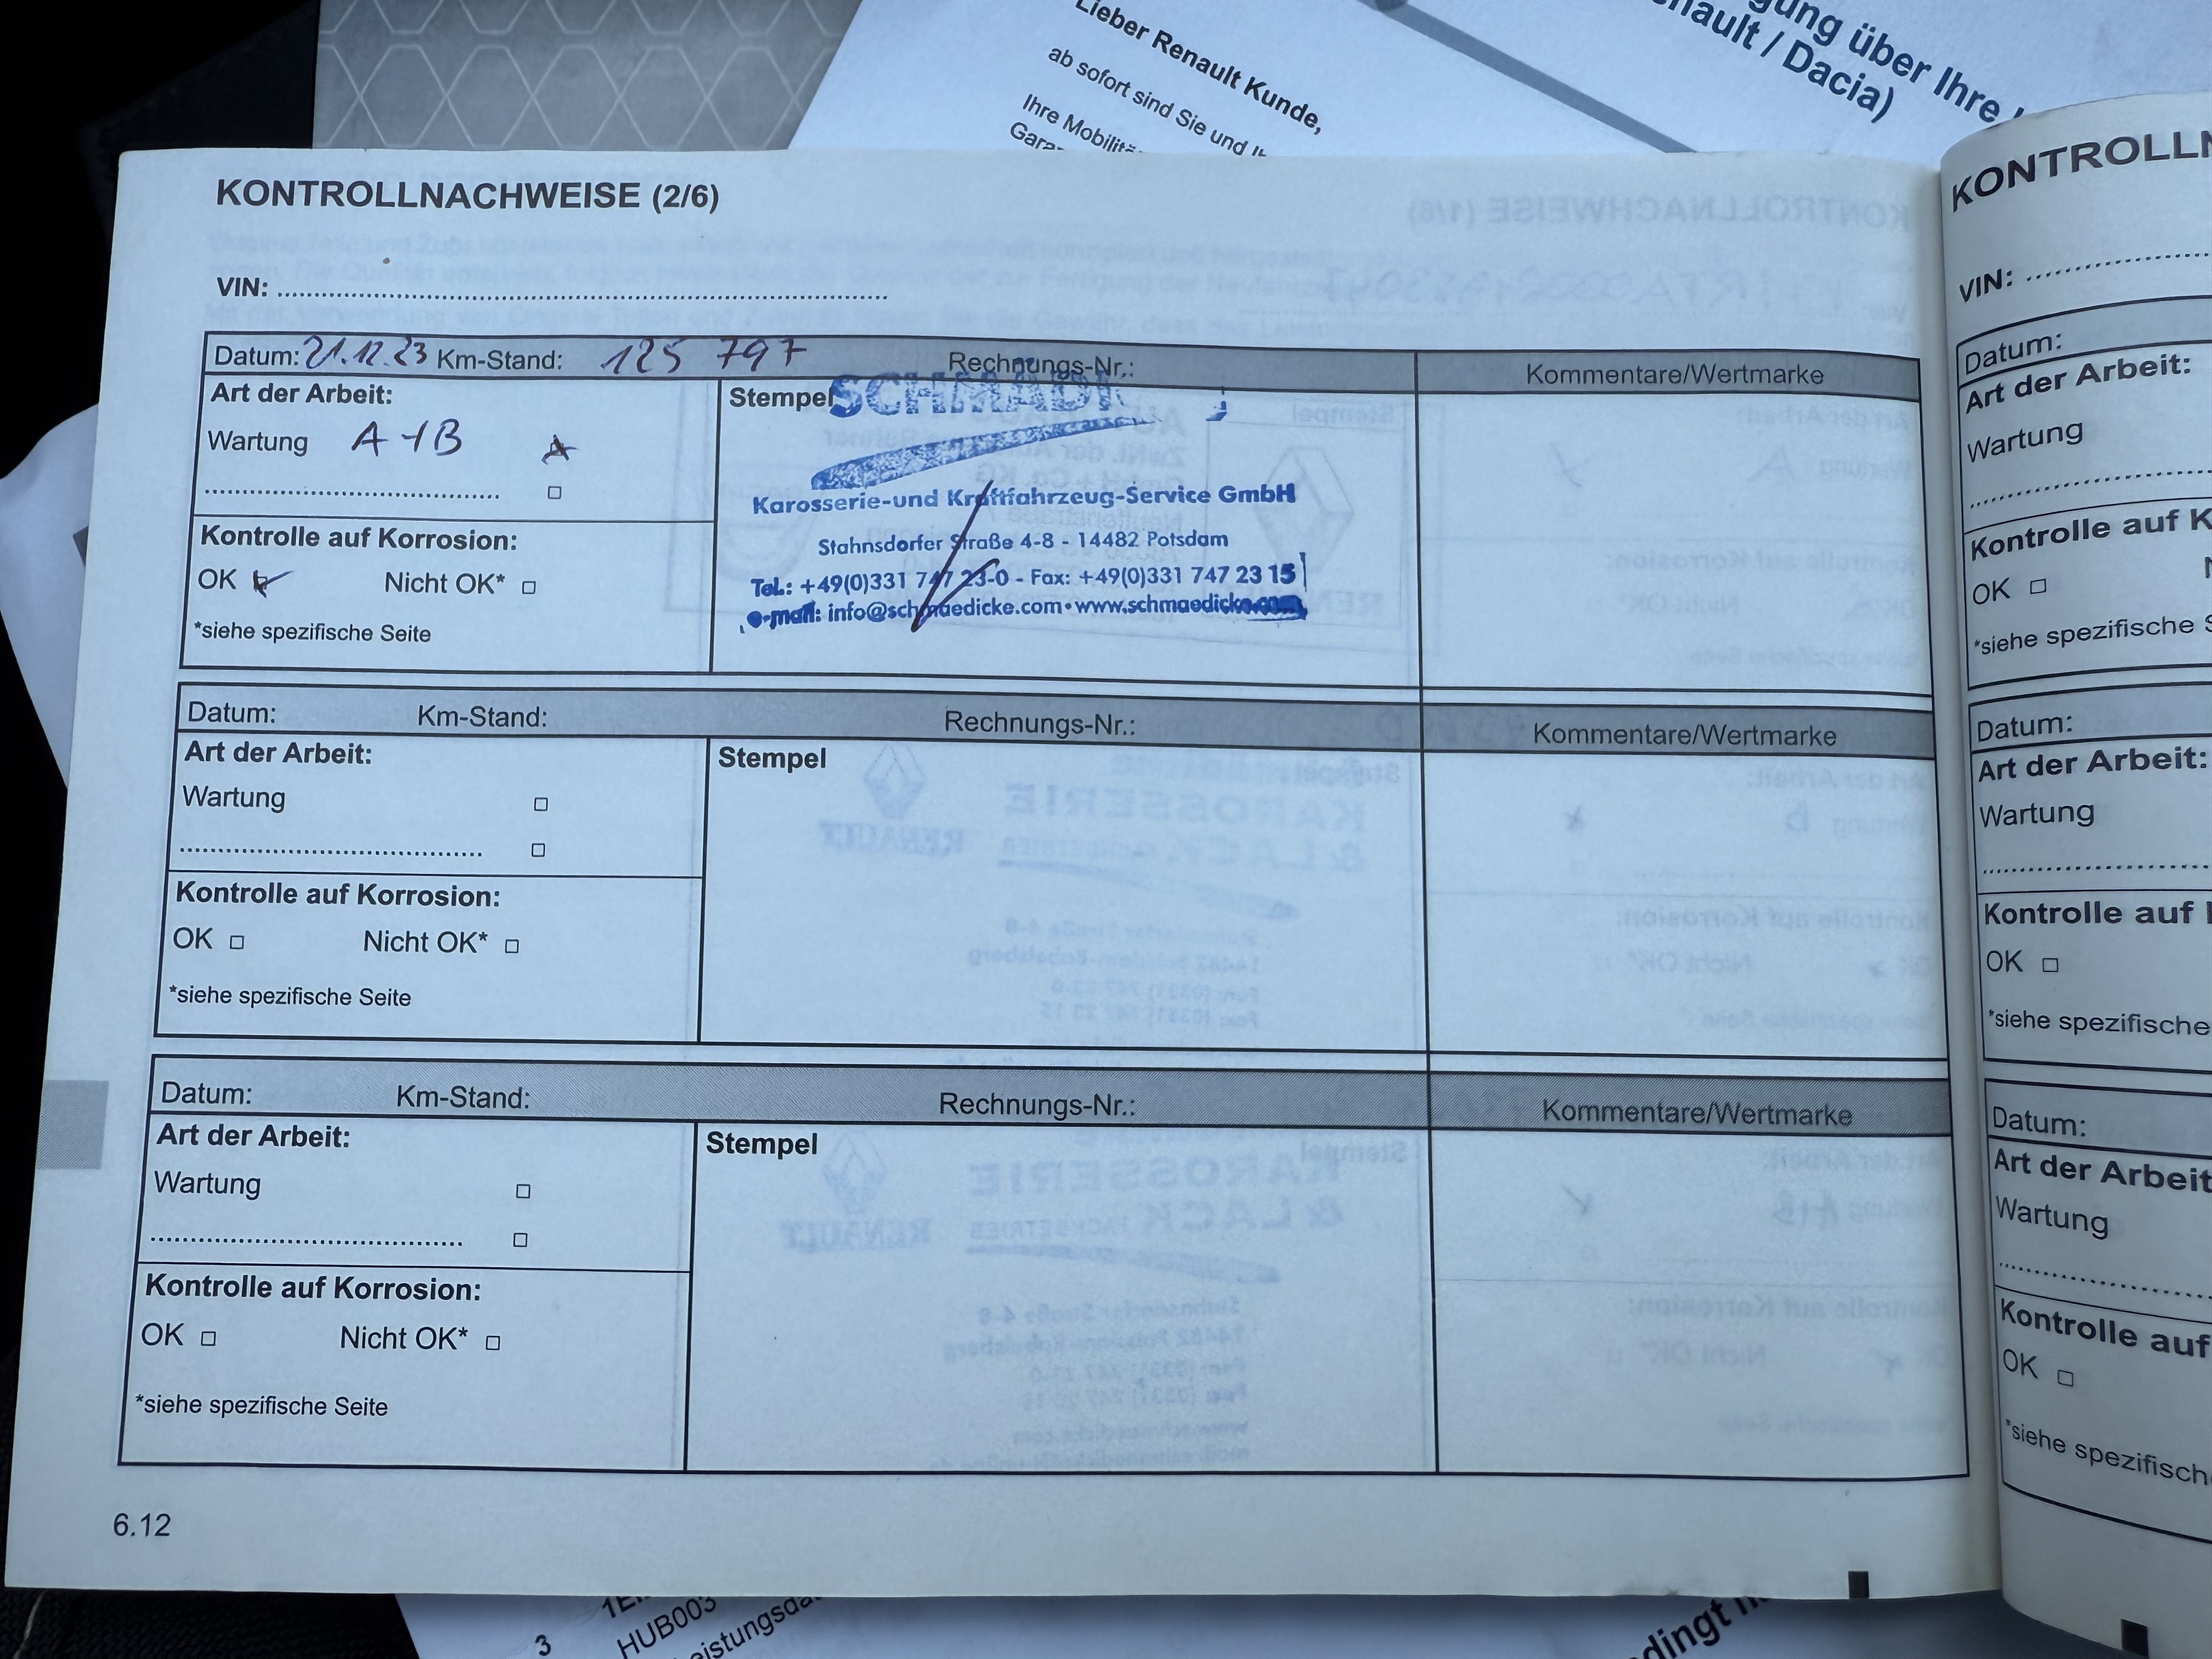 Lieber Renault Kunde,
ab sofort sind Sie und
Ihre Mobilitä
gung über Ihre
nault / Dacia)
KONTROLLNACHWEISE (2/6)
VIN:
Datum: 21.12.23 Km-Stand: 125 797 Rechnungs-Nr.: Kommentare/Wertmarke
Art der Arbeit:
Wartung A+B
Kontrolle auf Korrosion:
OK Nicht OK*
*siehe spezifische Seite
Stempel
Karosserie-und Kraftfahrzeug-Service GmbH
Stahnsdorfer Straße 4-8 - 14482 Potsdam
Tel.: +49(0)331 747 23-0 - Fax: +49(0)331 747 23 15
e-mail: info@schmaedicke.com • www.schmaedicke.com
Datum: Km-Stand: Rechnungs-Nr.: Kommentare/Wertmarke
Art der Arbeit:
Wartung
Kontrolle auf Korrosion:
OK Nicht OK*
*siehe spezifische Seite
Stempel
Datum: Km-Stand: Rechnungs-Nr.: Kommentare/Wertmarke
Art der Arbeit:
Wartung
Kontrolle auf Korrosion:
OK Nicht OK*
*siehe spezifische Seite
Stempel
6.12
KONTROLLN
VIN:
Datum:
Art der Arbeit:
Wartung
Kontrolle auf K
OK
*siehe spezifische S
Datum:
Art der Arbeit:
Wartung
Kontrolle auf
OK
*siehe spezifische
Datum:
Art der Arbeit
Wartung
Kontrolle auf
OK
*siehe spezifisch
3
HUB003
eistungsda
dingt